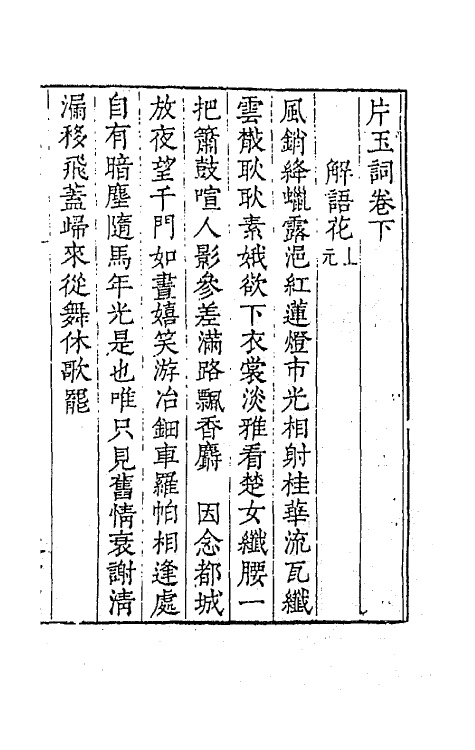 片玉詞卷下
解語花上元
風銷絳蠟露浥紅蓮燈市光相射桂華流瓦纖
雲㪚耿耿素娥欲下衣裳淡雅看楚女纖腰一
把簫鼓喧人影參差滿路飄香麝　因念都城
放夜望千門如晝嬉笑游冶鈿車羅帕相逢處
自有暗塵隨馬年光是也唯只見舊情衰謝清
漏移飛蓋歸來從舞休歌罷